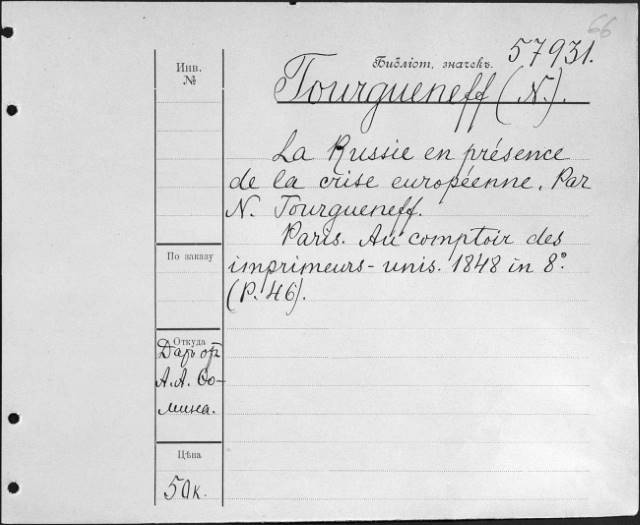 66
Библіот. значекъ. 57931.
Tourgueneff (N.).
La Russie en présence
de la crise européenne. Par
N. Tourgueneff.
Paris. Au comptoir des
imprimeurs-unis. 1848 in 8º
(P. 46).
Инв.
№
По заказу
Откуда
Даръ от
А.А. Со-
мина.
Цѣна
50к.